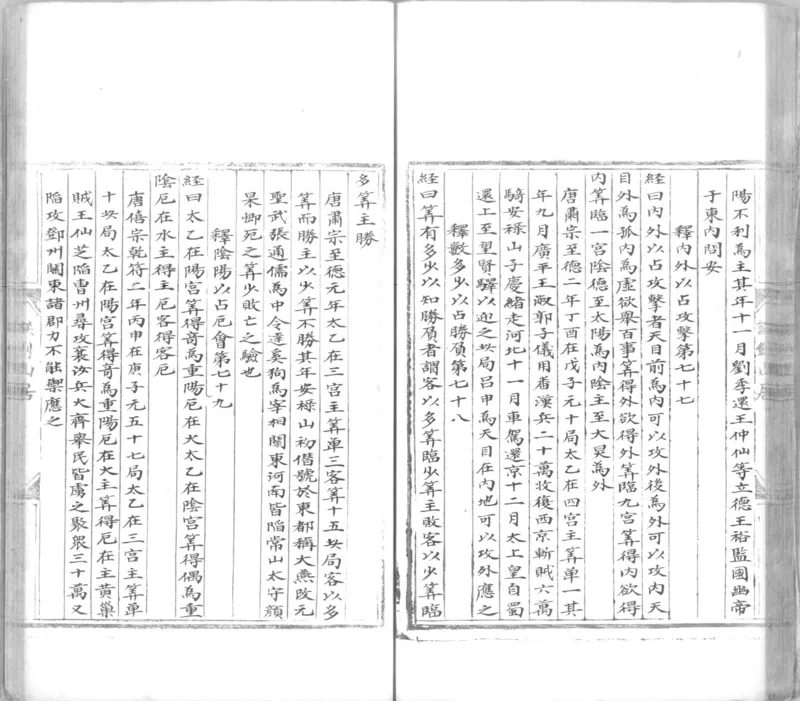 陽不利為主其年十一月劉季還王仲仙等立德王裕監國幽帝
于東內問安
釋內外以占攻擊第七十七
経曰內外以占攻擊者天目前為內可以攻外後為外可以攻內天
目外為孤內為虛欲舉百事筭得外欲得外筭臨九宮筭得內欲得
內筭臨一宮陰德至太陽為內陰主至大炅為外
唐肅宗至德二年丁酉在戊子元十局太乙在四宮主筭单一其
年九月廣平王淑郭子儀用畨漢兵二十萬收復西京斬賊六萬
騎安祿山子慶緒走河北十一月車駕還京十二月太上皇自蜀
還上至望賢驛以迎之此局吕申為天目在內地可以攻外應之
釋數多少以占勝負第七十八
経曰筭有多少以知勝負者謂客以多筭臨少筭主敗客以少筭臨
多筭主勝
唐肅宗至德元年太乙在三宮主筭单三客筭十五此局客以多
筭而勝主以少筭不勝其年安祿山初僣號於東都稱大燕改元
聖武張通儒為中令達奚狗為宰相関東河南皆陷常山太守顔
杲卿死之筭少敗亡之驗也
釋陰陽以占厄會第七十九
経曰太乙在陽宮筭得奇為重陽厄在火太乙在陰宮筭得偶為重
陰厄在水主得主厄客得客厄
唐僖宗乾符二年丙申在庚子元五十七局太乙在三宮主筭单
十此局太乙在陽宮筭得奇為重陽厄在火主筭得厄在主黃巢
賊王仙芝陷曺州尋攻襄汝兵火齊舉民皆虜之聚衆三十萬又
陷攻鄧州関東諸郡力不能禦應之